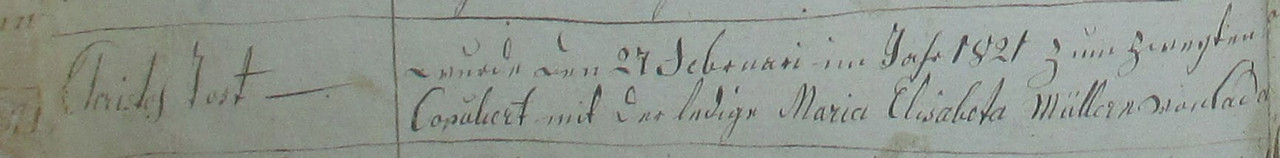 Christof Jost —
wurde den 27 Februari im Jahr 1821 zum zweyten
Copuliert mit der ledige Maria Elisabeta Müllern von